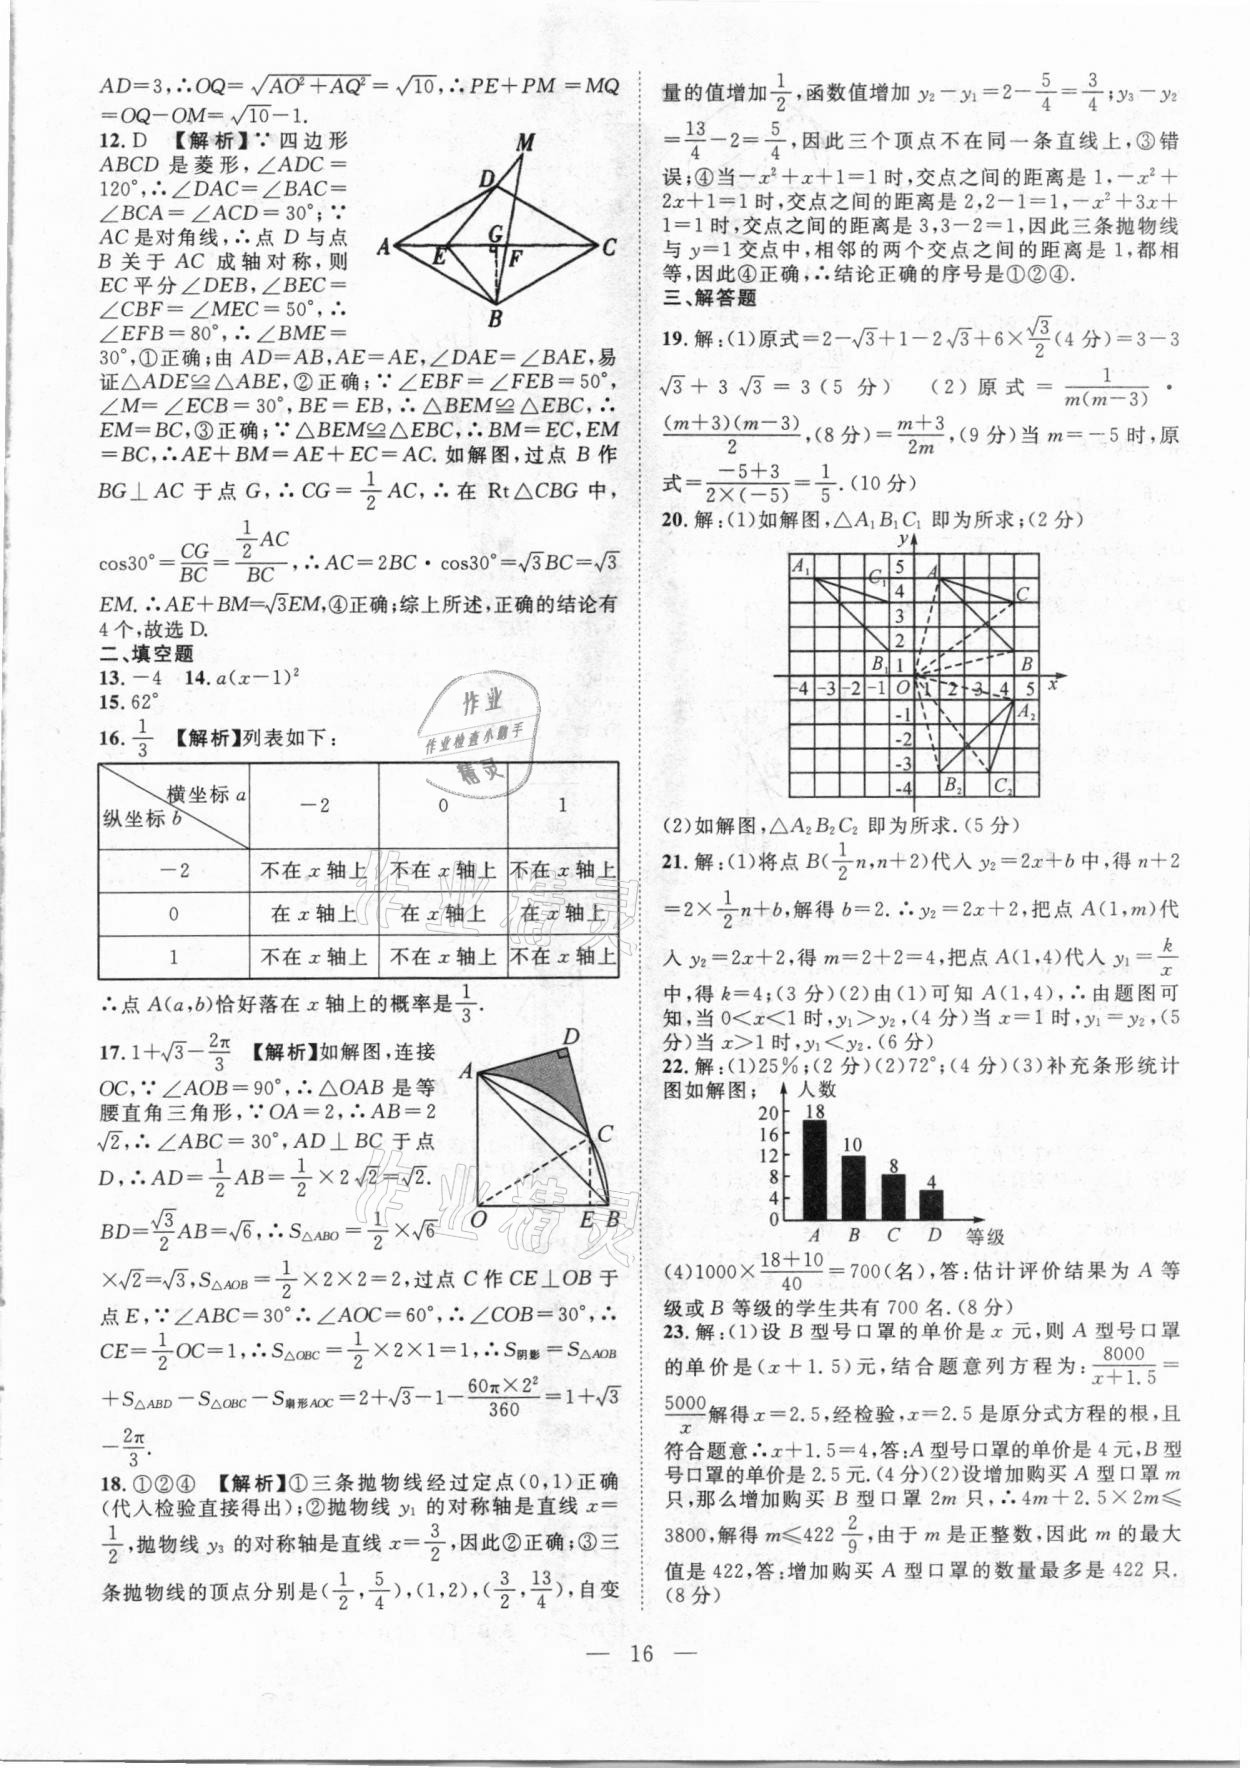 AD=3,∴OQ=√(AO²+AQ²)=√10,∴PE+PM=MQ
=OQ-OM=√10-1.
12.D 【解析】∵四边形
ABCD是菱形,∠ADC=
120°,∴∠DAC=∠BAC=
∠BCA=∠ACD=30°;∵
AC是对角线,∴点D与点
B关于AC成轴对称,则
EC平分∠DEB,∠BEC=
∠CBF=∠MEC=50°,∴
∠EFB=80°,∴∠BME=
30°,①正确;由AD=AB,AE=AE,∠DAE=∠BAE,易
证△ADE≌△ABE,②正确;∵∠EBF=∠FEB=50°,
∠M=∠ECB=30°,BE=EB,∴△BEM≌△EBC,∴
EM=BC,③正确;∵△BEM≌△EBC,∴BM=EC,EM
=BC,∴AE+BM=AE+EC=AC.如解图,过点B作
BG⊥AC于点G,∴CG=1/2AC,∴在Rt△CBG中,
cos30°=CG/BC=(1/2AC)/BC,∴AC=2BC·cos30°=√3BC=√3
EM.∴AE+BM=√3EM,④正确;综上所述,正确的结论有
4个,故选D.
M
D
A
E
G
F
C
B
二、填空题
13.-4 14.a(x-1)²
15.62°
16.1/3 【解析】列表如下:
横坐标a 纵坐标b -2 0 1
-2 不在x轴上 不在x轴上 不在x轴上
0 在x轴上 在x轴上 在x轴上
1 不在x轴上 不在x轴上 不在x轴上
∴点A(a,b)恰好落在x轴上的概率是1/3.
17.1+√3-2π/3 【解析】如解图,连接
OC,∵∠AOB=90°,∴△OAB是等
腰直角三角形,∵OA=2,∴AB=2
√2,∴∠ABC=30°,AD⊥BC于点
D,∴AD=1/2AB=1/2×2√2=√2.
BD=√3/2AB=√6,∴S△ABO=1/2×√6
×√2=√3,S△AOB=1/2×2×2=2,过点C作CE⊥OB于
点E,∵∠ABC=30°∴∠AOC=60°,∴∠COB=30°,∴
CE=1/2OC=1,∴S△OBC=1/2×2×1=1,∴S阴影=S△AOB
+S△ABD-S△OBC-S扇形AOC=2+√3-1-60π×2²/360=1+√3
-2π/3.
D
A
C
O
E
B
18.①②④ 【解析】①三条抛物线经过定点(0,1)正确
(代入检验直接得出);②抛物线y₁的对称轴是直线x=
1/2,抛物线y₃的对称轴是直线x=3/2,因此②正确;③三
条抛物线的顶点分别是(1/2,5/4),(1,2),(3/2,13/4),自变
量的值增加1/2,函数值增加y₂-y₁=2-5/4=3/4;y₃-y₂
=13/4-2=5/4,因此三个顶点不在同一条直线上,③错
误;④当-x²+x+1=1时,交点之间的距离是1,-x²+
2x+1=1时,交点之间的距离是2,2-1=1,-x²+3x+
1=1时,交点之间的距离是3,3-2=1,因此三条抛物线
与y=1交点中,相邻的两个交点之间的距离是1,都相
等,因此④正确,∴结论正确的序号是①②④.
三、解答题
19.解:(1)原式=2-√3+1-2√3+6×√3/2(4分)=3-3
√3+3√3=3(5分) (2)原式=1/m(m-3)·
(m+3)(m-3)/2,(8分)=(m+3)/2m,(9分)当m=-5时,原
式=(-5+3)/(2×(-5))=1/5.(10分)
20.解:(1)如解图,△A₁B₁C₁即为所求;(2分)
y
A₁ C₁ 5 A
4 C
3
2
B₁ 1 B
-4 -3 -2 -1 O 1 2 3 4 5 x
-1 A₂
-2
-3
-4 B₂ C₂
(2)如解图,△A₂B₂C₂即为所求.(5分)
21.解:(1)将点B(1/2n,n+2)代入y₂=2x+b中,得n+2
=2×1/2n+b,解得b=2.∴y₂=2x+2,把点A(1,m)代
入y₂=2x+2,得m=2+2=4,把点A(1,4)代入y₁=k/x
中,得k=4;(3分)(2)由(1)可知A(1,4),∴由题图可
知,当0<x<1时,y₁>y₂,(4分)当x=1时,y₁=y₂,(5
分)当x>1时,y₁<y₂.(6分)
22.解:(1)25%;(2分)(2)72°;(4分)(3)补充条形统计
图如解图;
人数
20
16
12
8
4
0
18 10 8 4
A B C D 等级
(4)1000×(18+10)/40=700(名),答:估计评价结果为A等
级或B等级的学生共有700名.(8分)
23.解:(1)设B型号口罩的单价是x元,则A型号口罩
的单价是(x+1.5)元,结合题意列方程为:8000/(x+1.5)=
5000/x解得x=2.5,经检验,x=2.5是原分式方程的根,且
符合题意∴x+1.5=4,答:A型号口罩的单价是4元,B型
号口罩的单价是2.5元.(4分)(2)设增加购买A型口罩m
只,那么增加购买B型口罩2m只,∴4m+2.5×2m≤
3800,解得m≤422 2/9,由于m是正整数,因此m的最大
值是422,答:增加购买A型口罩的数量最多是422只.
(8分)
— 16 —
作业
作业检查小助手
精灵
作业精灵
作业精灵